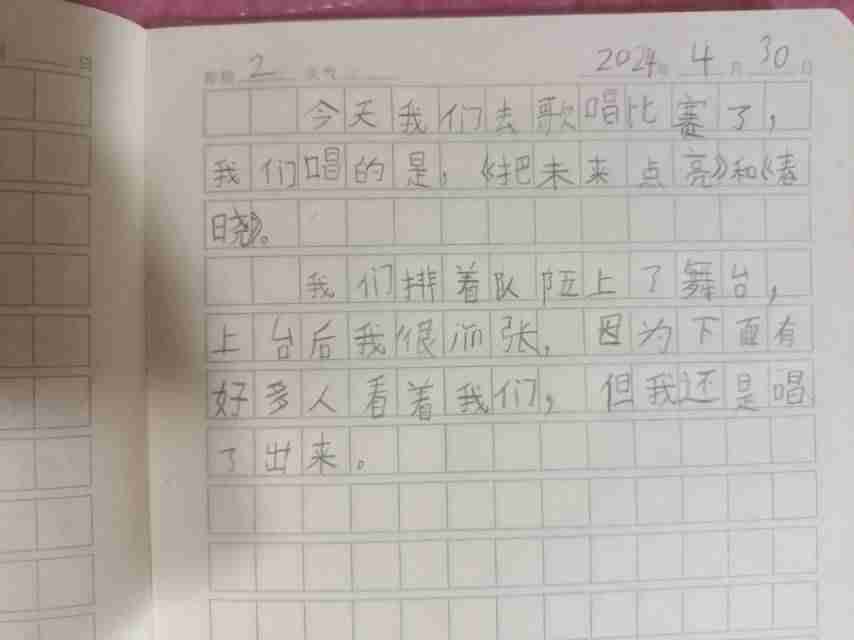 星期 2 天气 2024年 4月30日
今天我们去歌唱比赛了,
我们唱的是,《把未来点亮》和《春
晓》。
我们排着队 上了舞台,
上台后我很 张,因为下面有
好多人看着我们,但我还是唱
了出来。